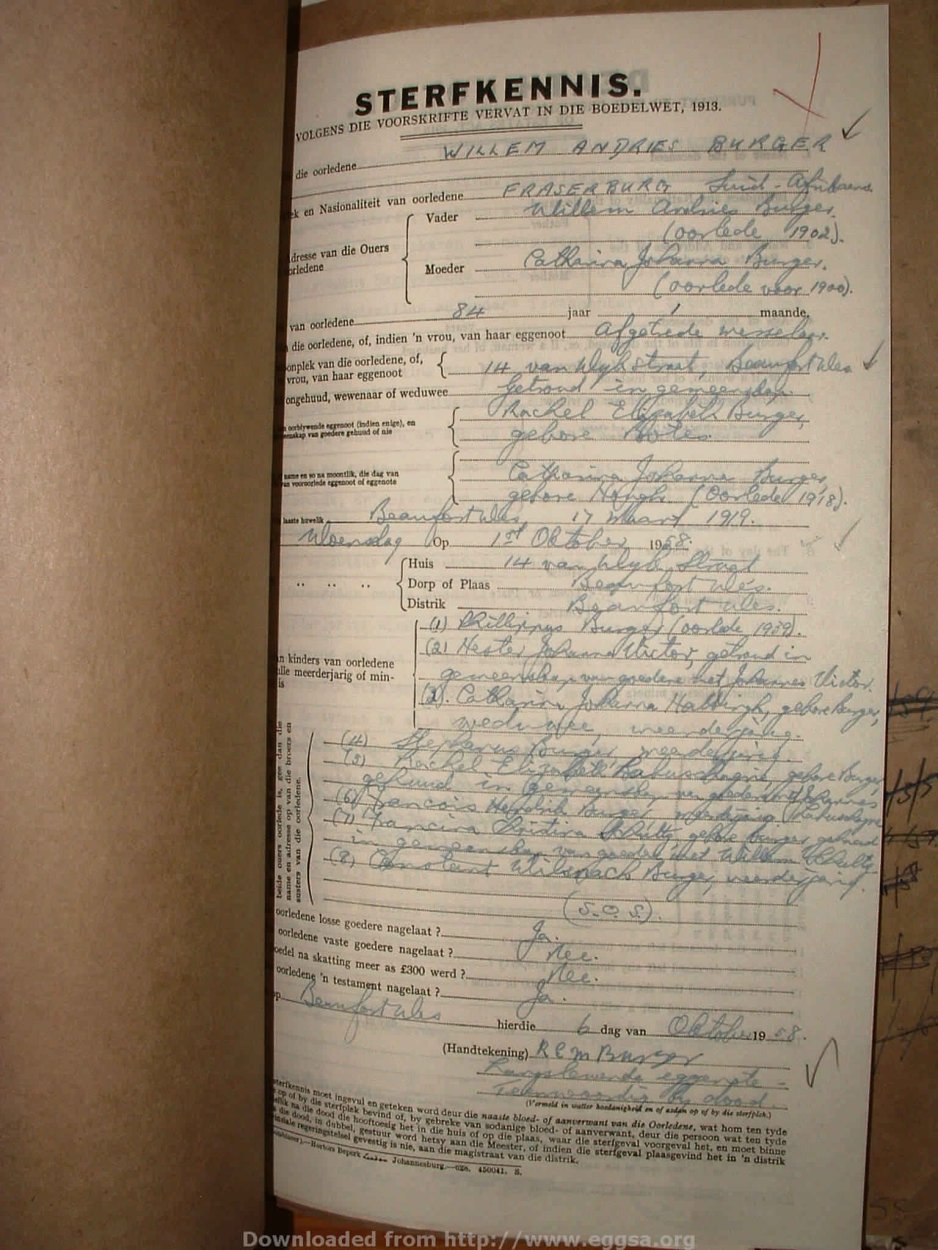 STERFKENNIS.
VOLGENS DIE VOORSKRIFTE VERVAT IN DIE BOEDELWET, 1913.
die oorledene WILLEM ANDRIES BURGER
ek en Nasionaliteit van oorledene FRASERBURG Suid-Afrikaans
Vader Willem Andries Burger.
(oorlede 1902).
dresse van die Ouers
orledene
Moeder Catharina Johanna Burger.
(oorlede voor 1900).
van oorledene 84 jaar 1 maande
die oorledene, of, indien 'n vrou, van haar eggenoot Afgetrede
oonplek van die oorledene, of,
vrou, van haar eggenoot
14 van Wyk straat, Beaufort Wes
ongehuud, wewenaar of weduwee Getroud in gemeenskap
n oorblywende eggenoot (indien enige), en
eenskap van goedere gehuud of nie
Rachel Elizabeth Burger,
gebore
name en so na moontlik, die dag van
van vooroorlede eggenoot of eggenote
Catharina Johanna Burger,
gebore (Oorlede 1918).
laaste huwelik Beaufort Wes 17 Maart 1919.
Woensdag Op 1st Oktober 1958.
Huis 14 van Wyk Straat
Dorp of Plaas Beaufort Wes.
Distrik Beaufort Wes.
(1) Phillippus Burger (oorlede 1939).
(2) Hester Johanna Victor, getroud in
gemeenskap van goedere met Johannes Victor.
n kinders van oorledene
lle meerderjarig of min-
is
(3). Catharina Johanna Hattingh, gebore Burger,
weduwee, meerderjarig.
(4) Stephanus Burger meerderjarig.
(5) Rachel Elizabeth Labuschagne, gebore Burger
gehuud in gemeenskap van goedere met Johannes
(6) Francois Hendrik Burger, meerderjarig Labuschagne
(7) Francina Christina Schultz, gebore Burger, gehuud
in gemeenskap van goedere met Willem Schultz
(8) Burger, meerderjarig.
beide ouers oorlede is, gee dan die
name en adresse op van die broers en
susters van die oorledene.
(S.O.S).
oorledene losse goedere nagelaat ? Ja.
oorledene vaste goedere nagelaat ? Nee.
oedel na skatting meer as £300 werd ? Nee.
oorledene 'n testament nagelaat ? Ja.
op Beaufort Wes hierdie 6 dag van Oktober 1958.
(Handtekening) R E M Burger
Langslewende eggenote -
Teenwoordig by dood.
(Vermeld in watter hoedanigheid en of asdan op of by die sterfplek.)
sterfkennis moet ingevul en geteken word deur die naaste bloed- of aanverwant van die Oorledene, wat hom ten tyde
op of by die sterfplek bevind of, by gebreke van sodanige bloed- of aanverwant, deur die persoon wat ten tyde
elik na die dood die hooftoesig het in die huis of op die plaas, waar die sterfgeval voorgeval het, en moet binne
die dood, in dubbel, gestuur word hetsy aan die Meester, of indien die sterfgeval plaasgevind het in 'n distrik
insiale regeringstelsel gevestig is nie, aan die magistraat van die distrik.
Johannesburg.
Downloaded from http://www.eggsa.org